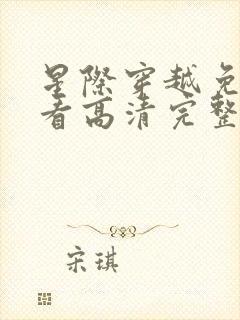 星際穿越免
看高清完整
宋琪